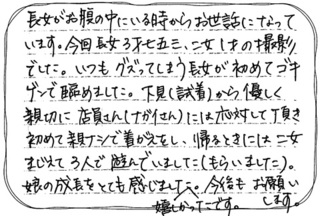 長女がお腹の中にいる時からお世話になって
います。今回長女3才七五三、二女1才の撮影
でした。いつもグズってしまう長女が初めてゴキ
ゲンで臨めました。下見(試着)から優しく
親切に店員さん(ながイさん)には応対して頂き
初めて親ナシで着がえをし、帰るときには二女
まじえて3人で遊んでいました(もらいました)。
娘の成長をとても感じました。今後もお願い
嬉しかったです。します。